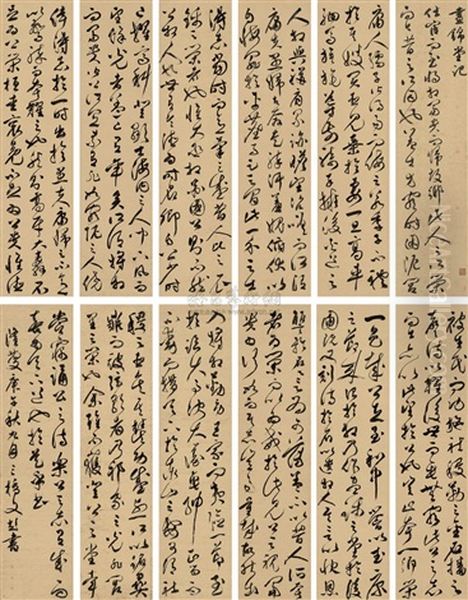 晝錦堂記
仕宦而至將相富貴而歸故鄉此人情之所榮
而今昔之所同也蓋士方窮時困阨閭里
庸人孺子皆得易而侮之若季子不禮
於其嫂買臣見棄於其妻一旦高車
駟馬旗旄導前而騎卒擁後夾道之
人相與駢肩累跡瞻望咨嗟而所謂
庸夫愚婦者奔走駭汗羞愧俯伏以
自悔罪於車塵馬足之間此一介之士
得志當時而意氣之盛昔人比之衣
錦之榮者也惟大丞相魏國公則不然
公相人也世有令德為時名卿自公少時
已擢高科登顯士海內之人聞下風而
望餘光者蓋亦有年矣所謂將相
而富貴皆公所宜素有非如窮阨之人僥
倖得志於一時出於庸夫愚婦之不意
以驚駭而夸耀之也然則高牙大纛不
足為公榮桓圭袞冕不足為公貴惟德
被生民而功施社稷勒之金石播之
聲詩以耀後世而垂無窮此公之志
而士亦以此望於公也豈止夸一時榮
一鄉哉公在至和中嘗以武康
之節來治於相乃作晝錦之堂於後
圃既又刻詩於石以遺相人其言以快恩
讎矜名譽為可薄蓋不以昔人所夸
者為榮而以為戒於此見公之視富
貴為何如而其志豈易量哉故能出
入將相勤勞王家而夷險一節至
於臨大事決大議垂紳正笏
不動聲氣而措天下於泰山之安可謂社
稷之臣矣其豐功盛烈所以銘彝
鼎而被絃歌者乃邦家之光非閭
里之榮也余雖不獲登公之堂幸
嘗竊誦公之詩樂公之志有成而
喜為天下道也於是乎書
隆慶庚午秋九月三橋文彭書